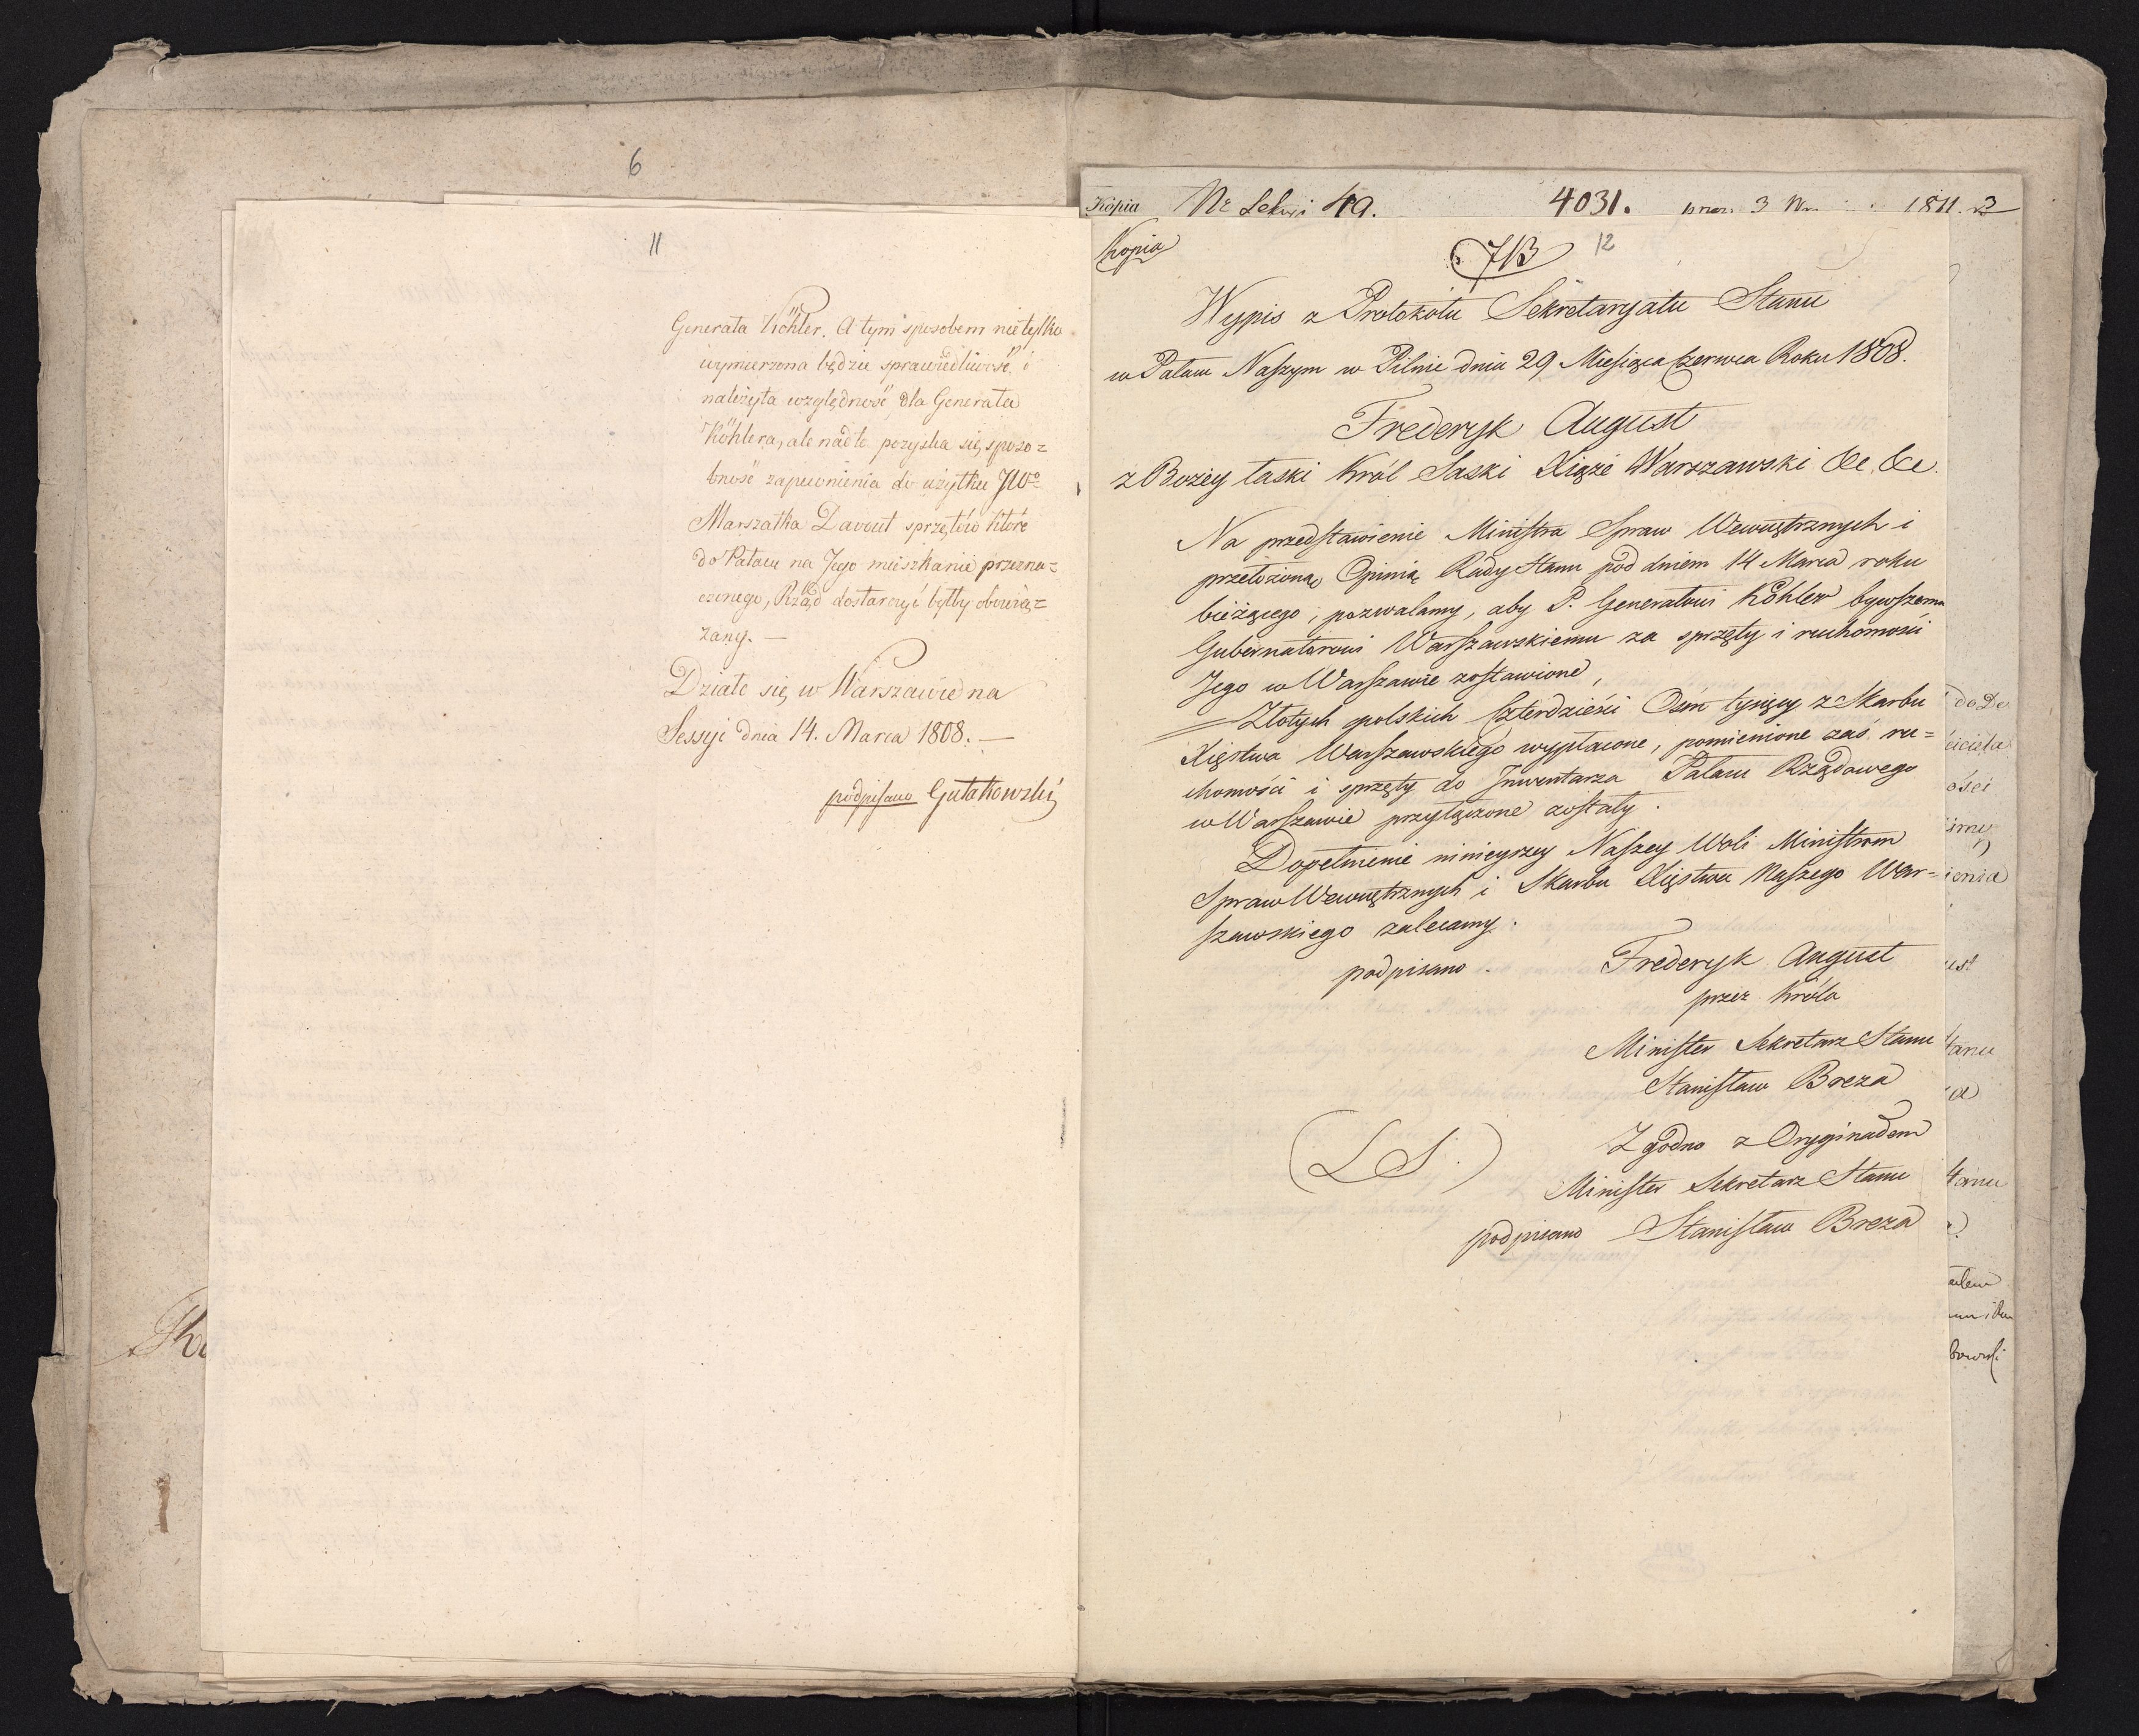 6
11
Generała Köhler. A tym sposobem nie tylko
wymierzona będzie sprawiedliwość, i
należyta względność dla Generała
Köhlera, ale nadto pozyska się sposo=
bność zapewnienia do użytku JWo
Marszałka Davout sprzętów które
do Pałacu na Jego mieszkanie przezna=
czonego, Rząd dostarczyć byłby obowią=
zany. —
Działo się w Warszawie na
Sessyi dnia 14. Marca 1808. —
podpisano Gutakowski
Kopia Nr Sekcyi 49. 4031. 3 1811. 3
Kopia
7B 12
Wypis z Protokółu Sekretaryatu Stanu
w Pałacu Naszym w Pilnie dnia 29 Miesiąca Czerwca Roku 1808.
Frederyk August
z Bożey łaski Król Saski Xiąże Warszawski &c &c.
Na przedstawienie Ministra Spraw Wewnętrznych i
przełożoną Opinią Rady Stanu pod dniem 14 Marca roku
bieżącego, pozwalamy, aby P. Generałowi Köhler bywszemu
Gubernatorowi Warszawskiemu za sprzęty i ruchomości
Jego w Warszawie zostawione,
Złotych polskich Czterdzieści Ośm tysięcy z Skarbu
Xięstwa Warszawskiego wypłacone, pomienione zaś ru=
chomości i sprzęty do Inwentarza Pałacu Rządowego
w Warszawie przyłączone zostały.
Dopełnienie ninieyszey Naszey Woli Ministrom
Spraw Wewnętrznych i Skarbu Xięstwa Naszego War=
szawskiego zalecamy.
podpisano. Frederyk August
przez Króla
Minister Sekretarz Stanu
Stanisław Breza
Zgodno z Oryginałem
(L S.) Minister Sekretarz Stanu
podpisano Stanisław Breza